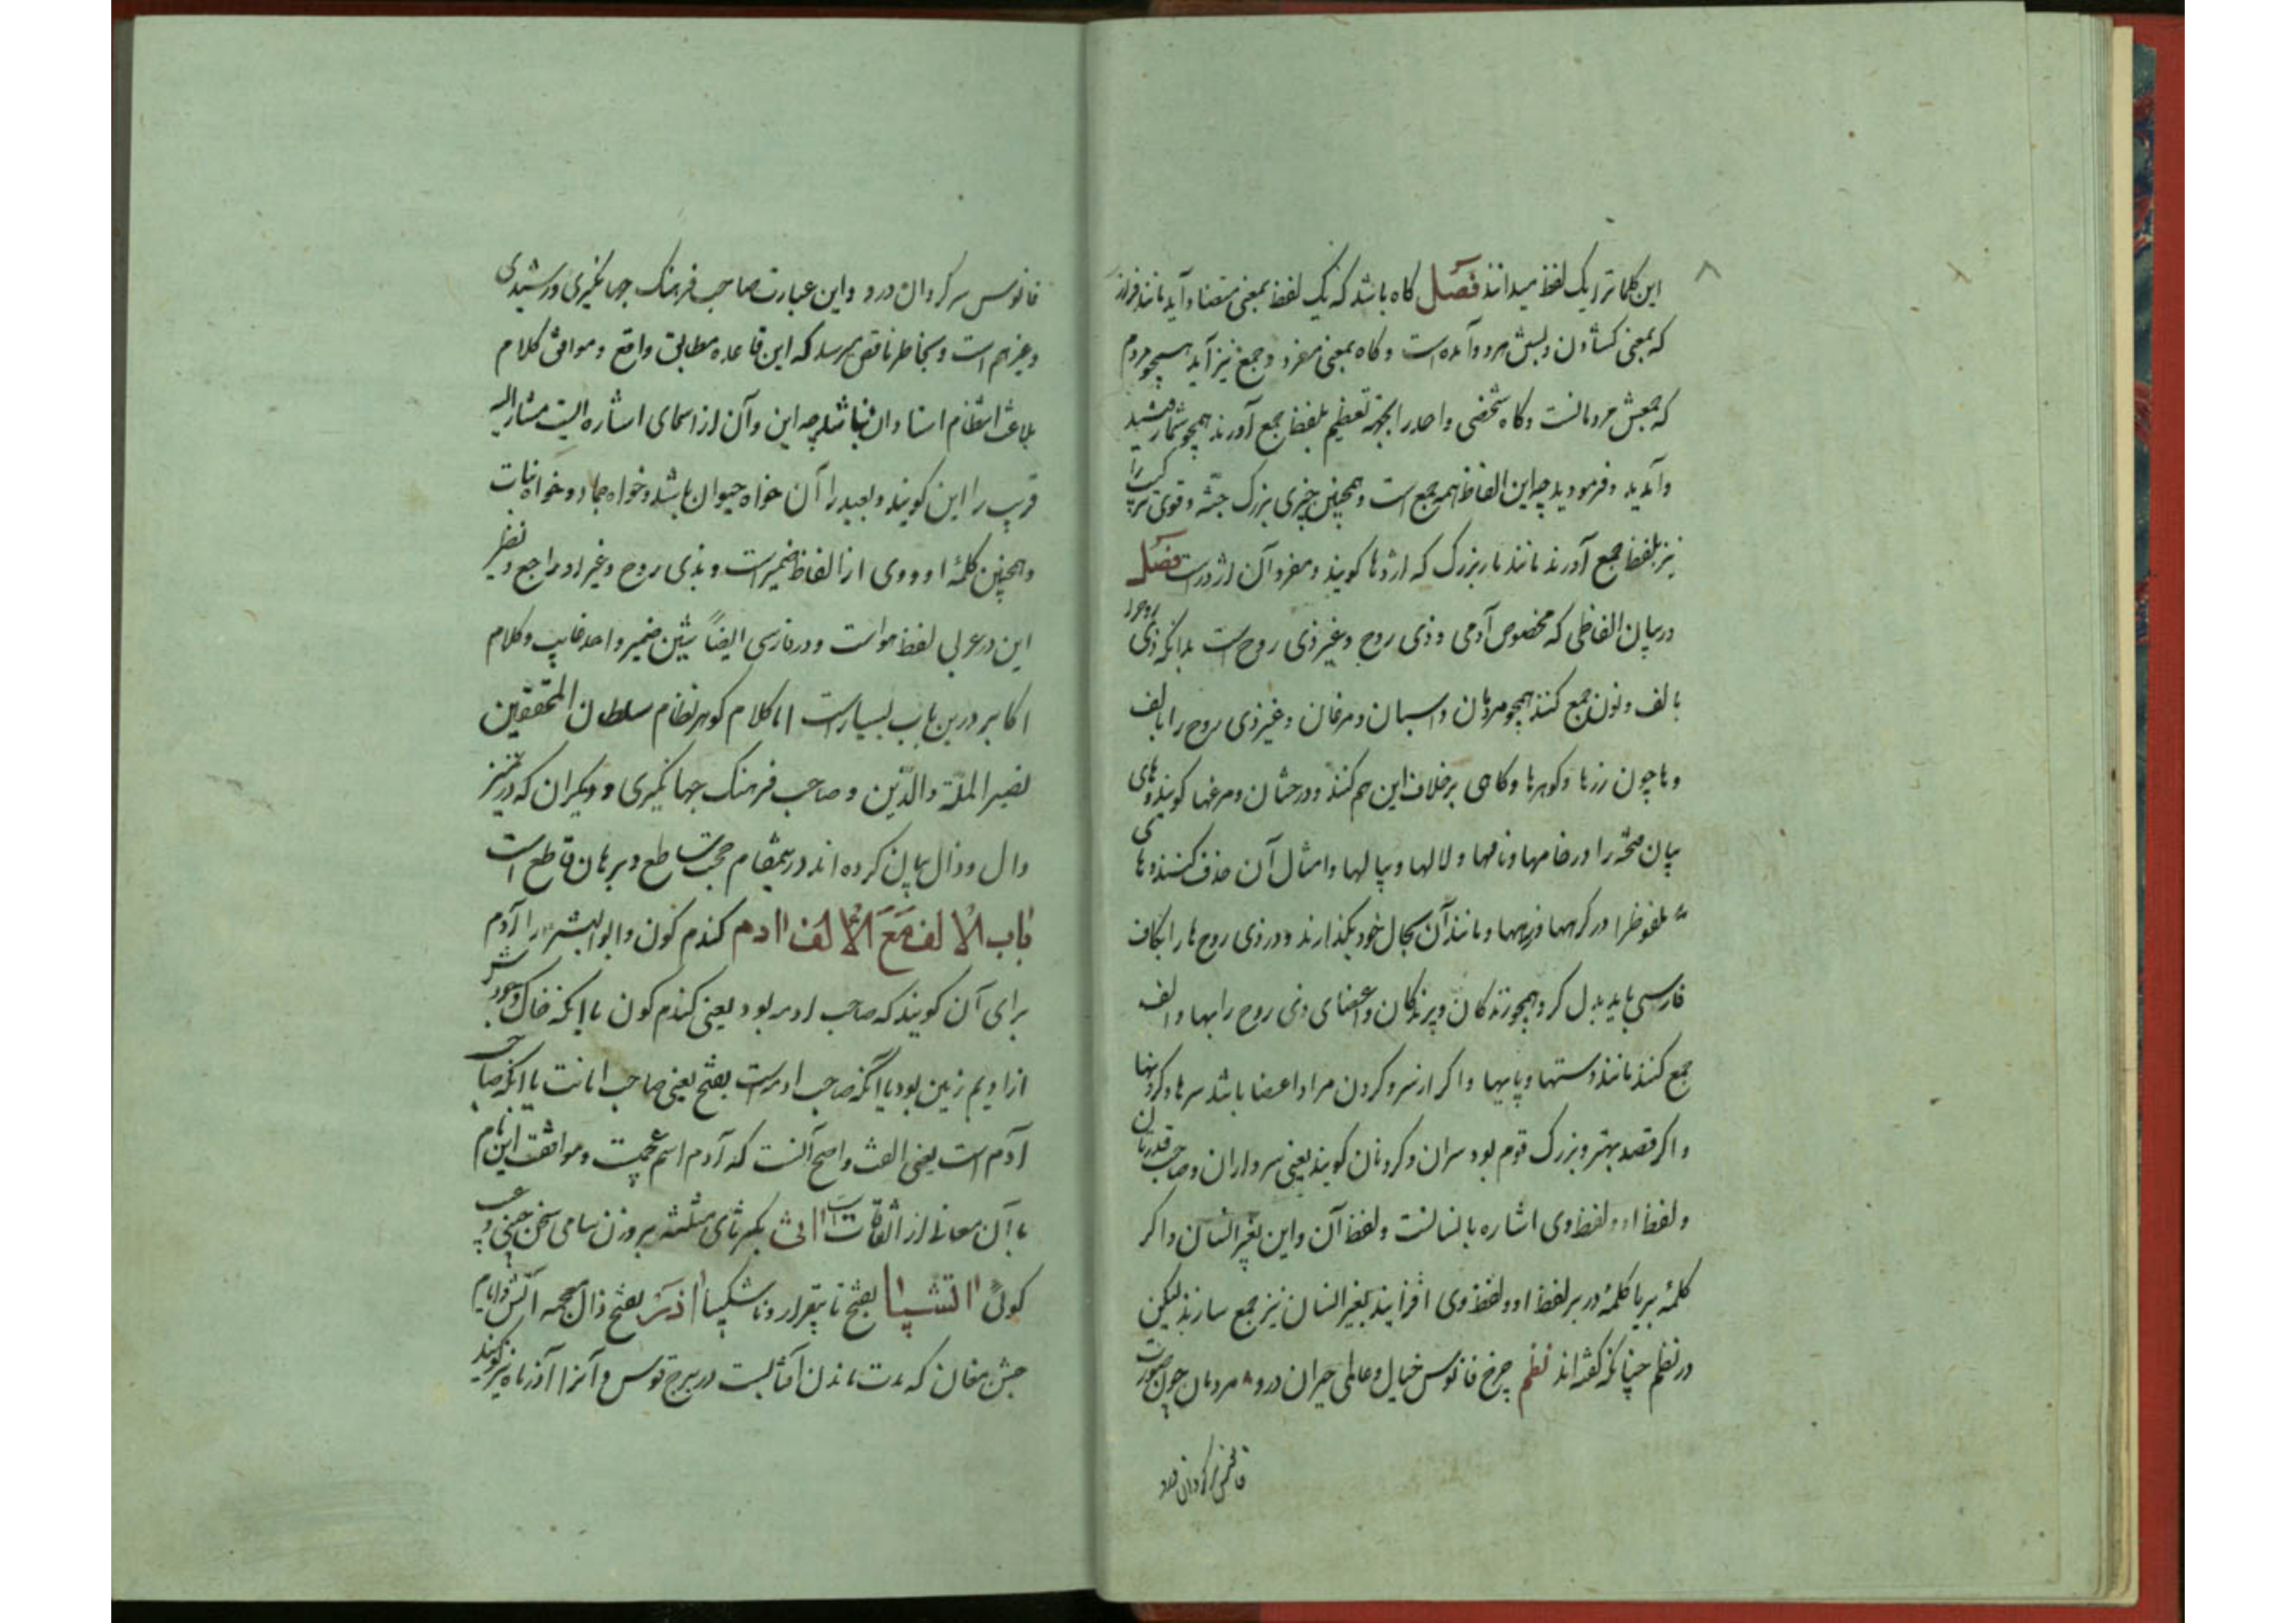 ۸
این کلماترا یک لفظ میدانند فصل کاه باشد که یک لفظ بمعنی متضاد آید مانند فراز
که بمعنی کشادن و بستن هردو آمده است و کاه بمعنی مفرد و جمع نیز آید همچو مردم
که جمعش مردمانست و کاه شخصی واحد را بجهة تعظیم بلفظ جمع آورند همچو شما رفتید
و آمدید و فرمودید چه این الفاظ همه جمع است و همچنین چیزی بزرک جثّه و قوی ترکیب را
نیز بلفظ جمع آورند مانند مار بزرک که اژدها کویند و مفرد آن اژدرست فصل
در بیان الفاظی که مخصوص آدمی و ذی روح و غیر ذی روح است بدانکه ذی روح را
بالف و نون جمع کنند همچو مردمان و اسبان و مرغان و غیر ذی روح را بالف
و ها چون زرها و کوهرها و کاهی برخلاف این هم کنند و درختان و مرغها کویند و های
بیان فتحه را در خامها و نامها و لالها و پیالها و امثال آن حذف کنند و های
ملفوظ را در کرهها و زرهها و مانند آن بحال خود بکذارند و در ذی روح ها را بکاف
فارسی باید بدل کرد همچو زندکان و پرندکان و اعضای ذی روح را بها و الف
جمع کنند مانند دستها و پایها و اکر از سر و کردن مراد اعضا باشد سرها و کردنها
و اکر قصد بهتر و بزرک قوم بود سران و کردنان کویند یعنی سرداران و صاحب قدرتان
و لفظ او و لفظ وی اشاره بانسانست و لفظ آن و این بغیر انسان و اکر
کلمهٔ بر یا کلمهٔ در بر لفظ او و لفظ وی افزایند بغیر انسان نیز جمع سازند لیکن
در نظم چنانکه کفته اند نظم چرخ فانوس خیال و عالمی حیران درو مردمان چون صورت
فانوس سرکردان درو
فانوس سرکردان درو و این عبارت صاحب فرهنک جهانکیری و رشیدی
و غیرهم است و بخاطر ناقص میرسد که این قاعده مطابق واقع و موافق کلام
بلاغت انتظام استادان نباشد چه این و آن از اسمای اشاره الیست مشار الیه
قریب را این کویند و بعید را آن خواه حیوان باشد و خواه جماد و خواه نبات
و همچنین کلمهٔ او و وی از الفاظ ضمیر است و بذی روح و غیر او راجع و نظیر
این در عربی لفظ هو است و در فارسی ایضاً شین ضمیر واحد غایب و کلام
اکابر درین باب بسیارست اما کلام کوهر نظام سلطان المحققین
نصیر الملّة والدّین و صاحب فرهنک جهانکیری و دیکران که در تمیز
دال و ذال بیان کرده اند درینمقام حجت ساطع و برهان قاطع است
باب الالف مع الالف اادم کندم کون و ابوالبشر را آدم
برای آن کویند که صاحب ادمه بود یعنی کندم کون یا انکه خاک وجودش
از ادیم زمین بود یا انکه صاحب ادمه است بفتح یعنی صاحب امانت یا انکه صاحب
آدم است یعنی الفت و اصح آنست که آدم اسم عجمیست و موافقت این نام
با آن معانی از اتفاقات است ااثی بکسر ثای مثلثه بر وزن سامی سخن چینی و عیب
کوئی ااتشبا بفتح تا بیقرار و ناشکیبا ااذر بفتح ذال معجمه آتش و ایام
جشن مغان که مدت ماندن آفتابست در برج قوس و آنرا آذر ماه نیز کویند